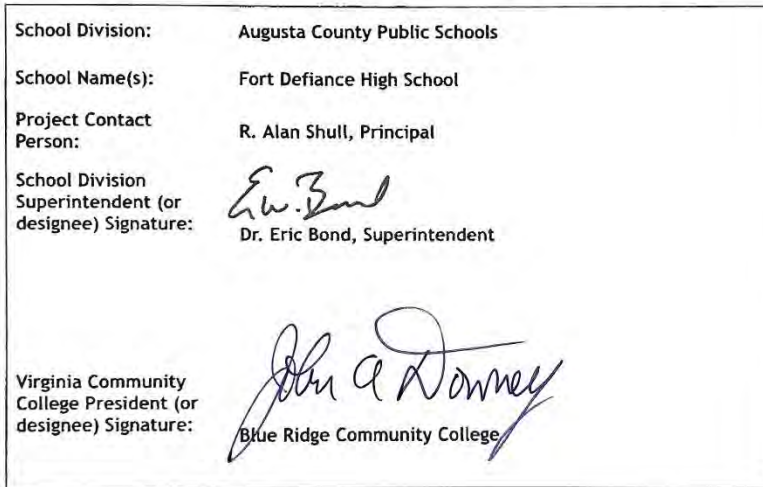 School Division: Augusta County Public Schools
School Name(s): Fort Defiance High School
Project Contact
Person: R. Alan Shull, Principal
School Division
Superintendent (or
designee) Signature: E.W. Bond
Dr. Eric Bond, Superintendent
John A Downey
Virginia Community
College President (or
designee) Signature: Blue Ridge Community College